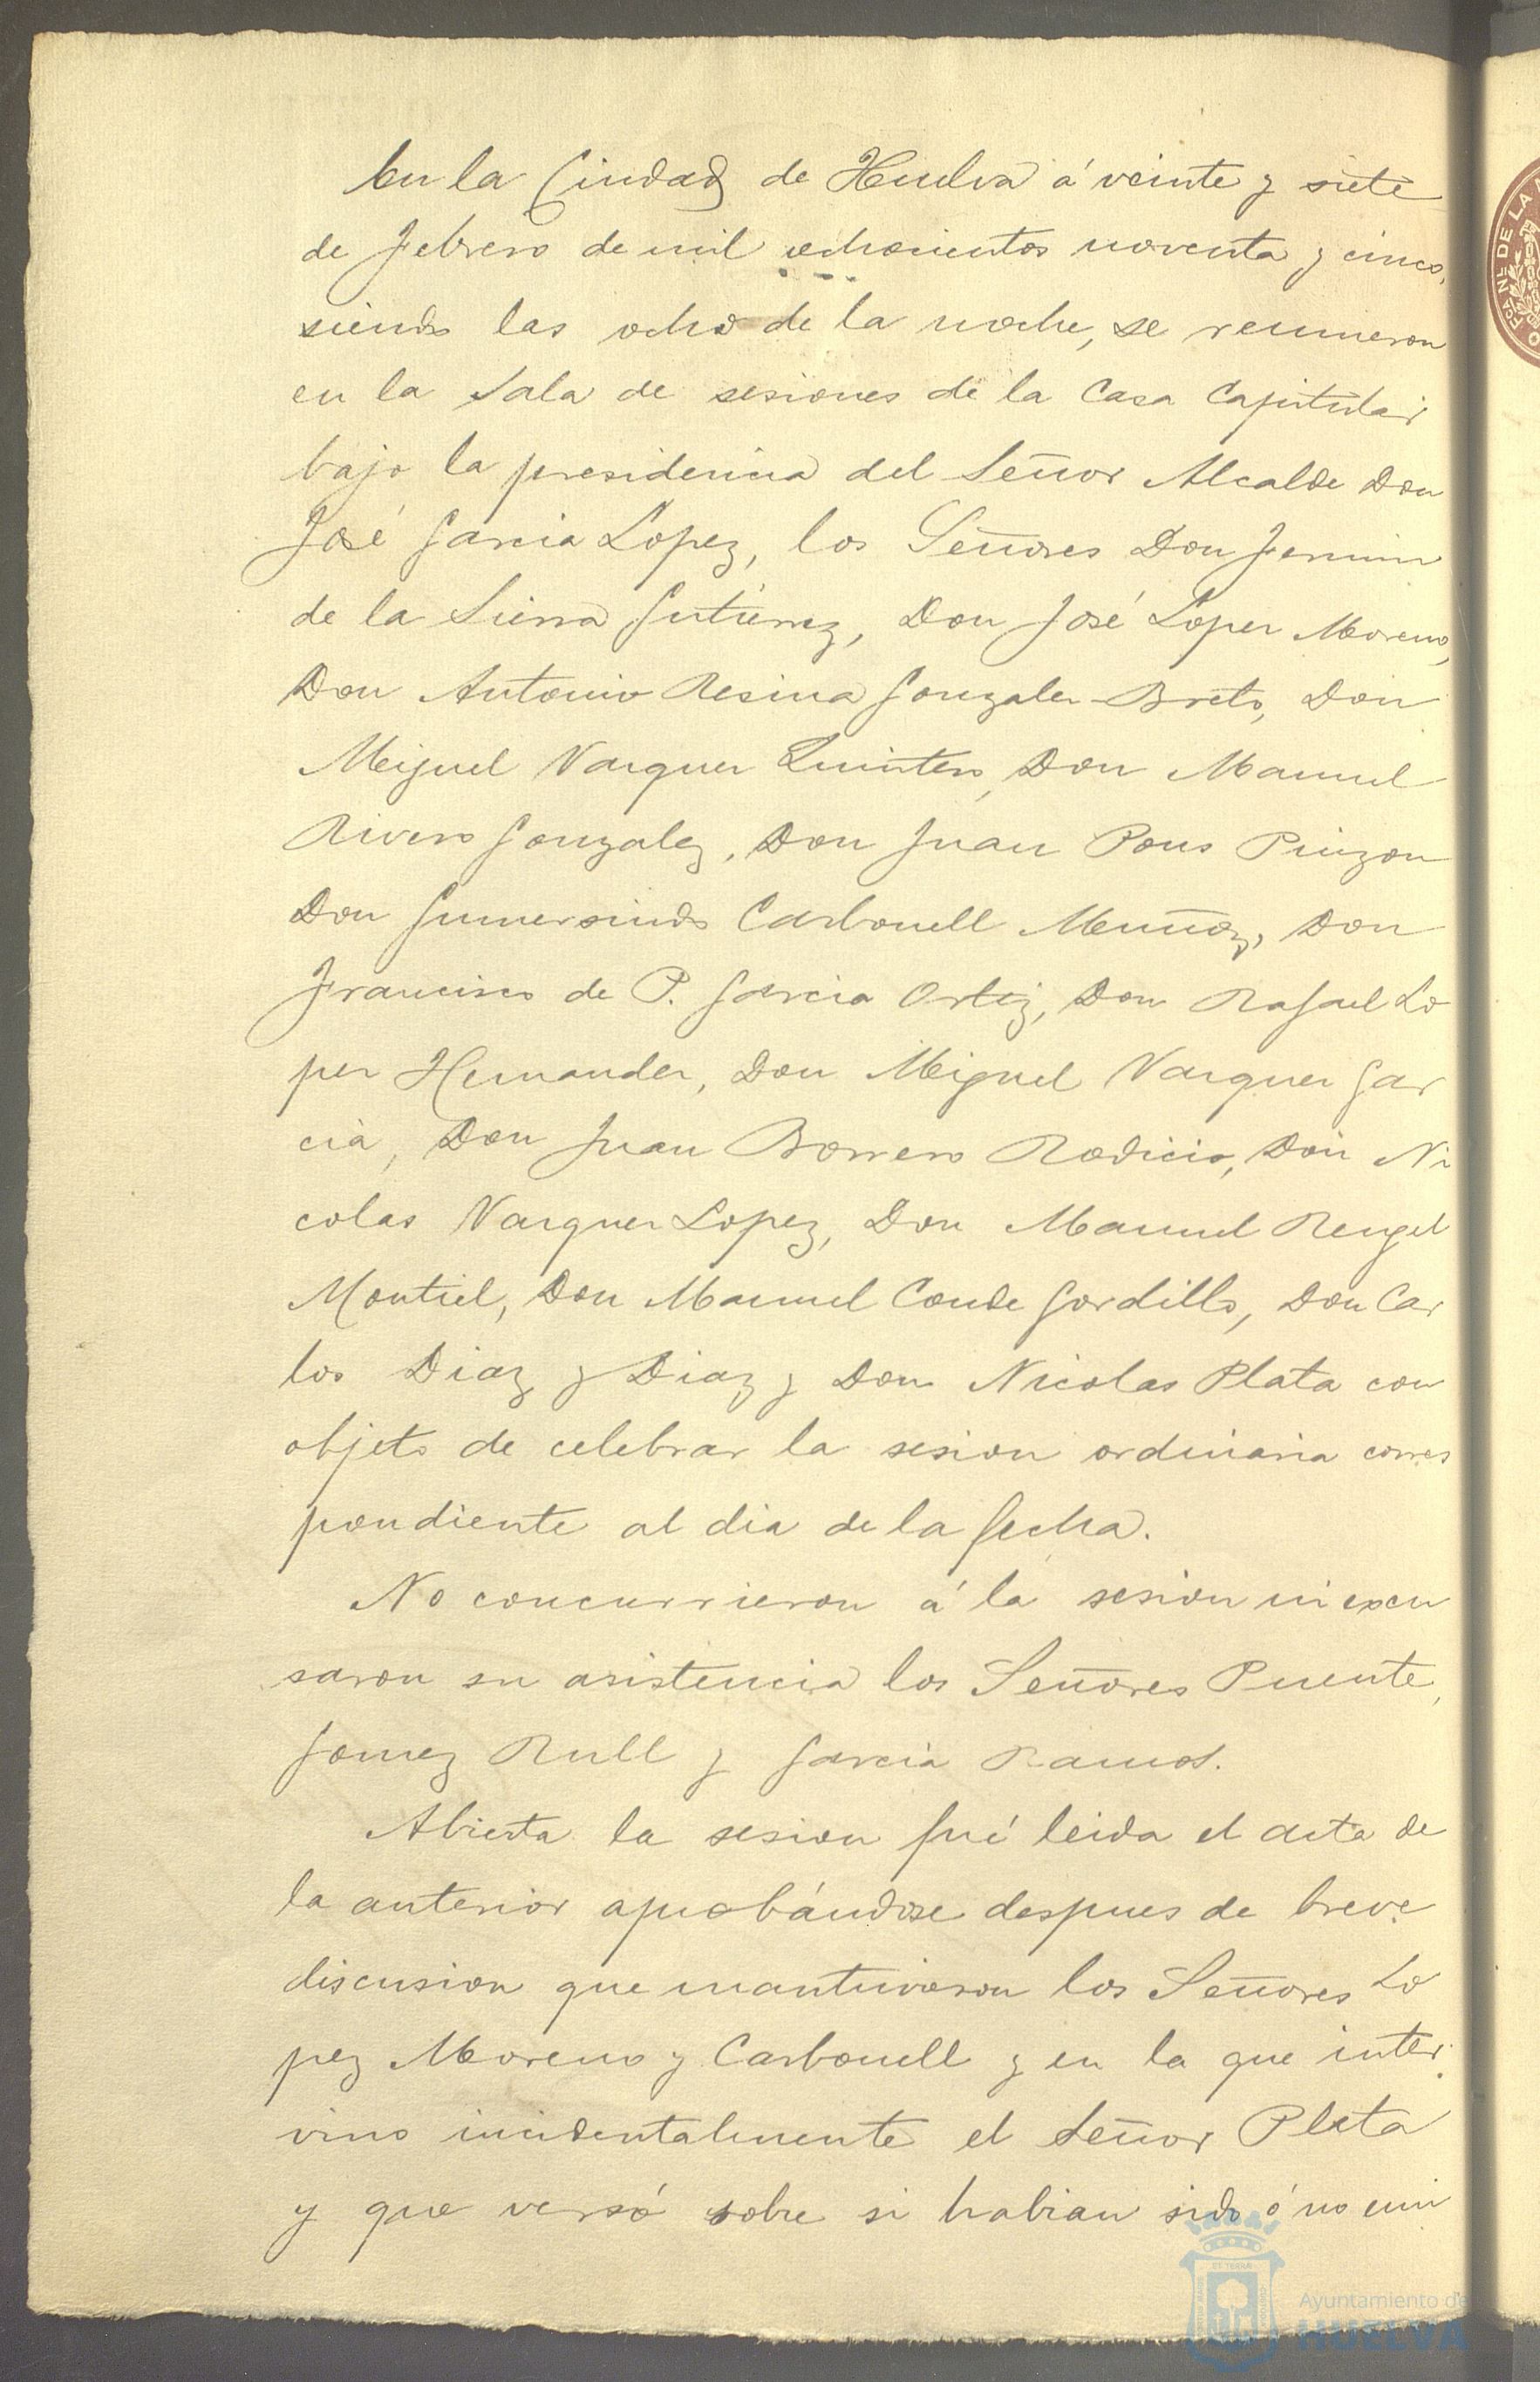 En la Ciudad de Huelva á veinte y siete
de Febrero de mil ochocientos noventa y cinco,
siendo las ocho de la noche, se reunieron
en la Sala de sesiones de la Casa Capitular
bajo la presidencia del Señor Alcalde Don
José Garcia Lopez, los Señores Don Fermin
de la Sierra Gutierrez, Don José Lopez Moreno,
Don Antonio Resina Gonzalez Breto, Don
Miguel Vazquez Quintero, Don Manuel
Rivero Gonzalez, Don Juan Pons Pinzon
Don Gumersindo Carbonell Muñoz, Don
Francisco de P. Garcia Ortiz, Don Rafael Lo
pez Hernandez, Don Miguel Vazquez Gar
cia, Don Juan Borrero Rodicio, Don Ni
colas Vazquez Lopez, Don Manuel Rengel
Montiel, Don Manuel Conde Gordillo, Don Car
los Diaz y Diaz y Don Nicolas Plata con
objeto de celebrar la sesion ordinaria corres
pondiente al dia de la fecha.
No concurrieron á la sesion ni excu
saron su asistencia los Señores Puente,
Gomez Rull y Garcia Ramos.
Abierta la sesion fué leida el acta de
la anterior aprobándose despues de breve
discusion que mantuvieron los Señores Lo
pez Moreno y Carbonell y en la que inter
vino incidentalmente el Señor Plata
y que versó sobre si habian sido ó no emi
Ayuntamiento de
HUELVA